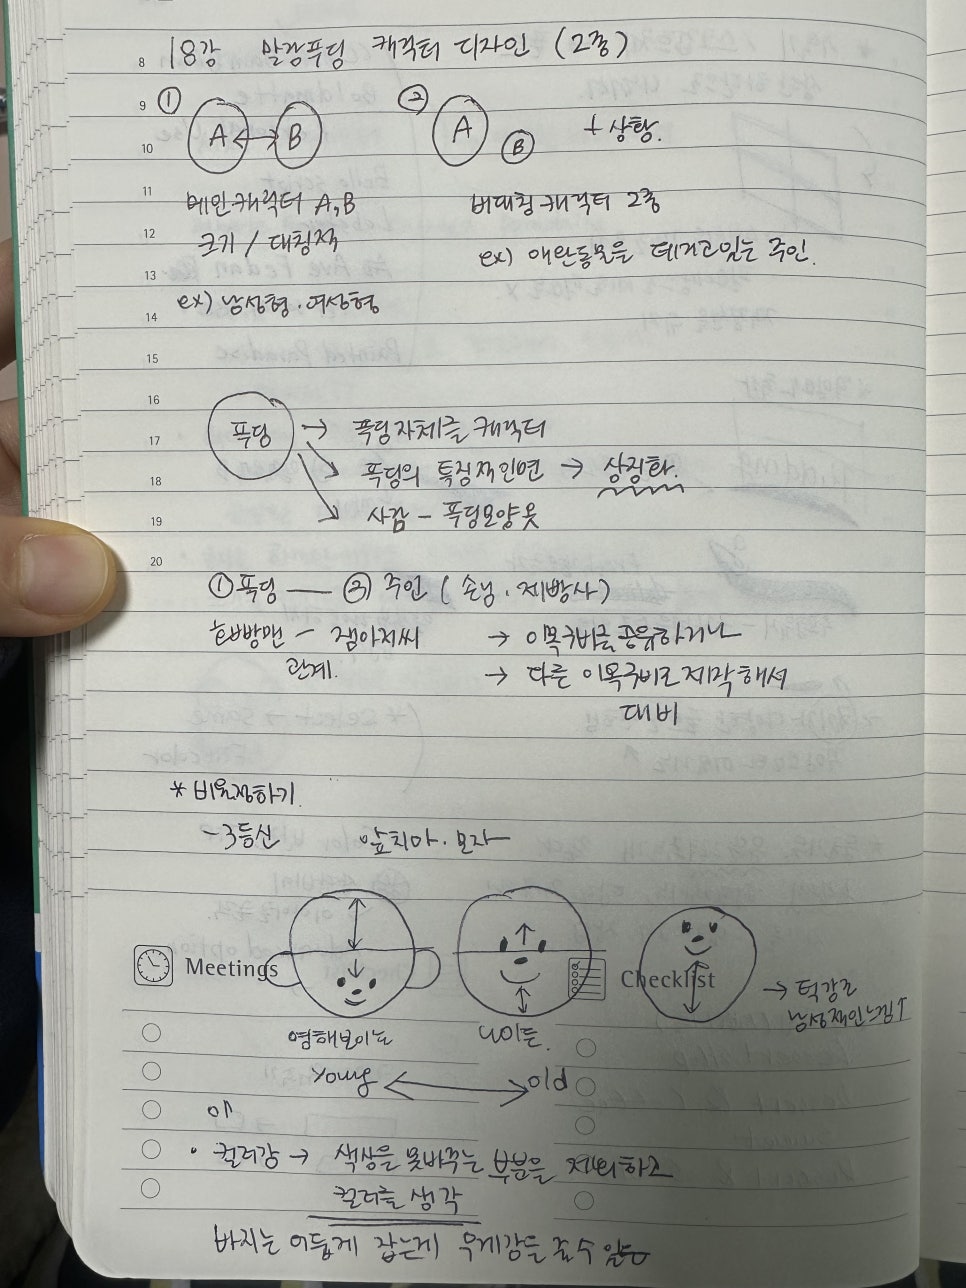 8 18강 말랑푸딩 캐릭터 디자인 (2종)
9 ① ②
10 A ↔ B A B + 상황.
11 메인캐릭터 A, B 비대칭 캐릭터 2종
12 크기 / 대칭적 ex) 애완동물을 데리고있는 주인.
13
ex) 남성형·여성형
14
15
16
17 푸딩 → 푸딩자체를 캐릭터
18 푸딩의 특징적인면 → 상징화.
19 사람 - 푸딩모양옷
20
① 푸딩 — ② 주인 ( 손님·제빵사)
호빵맨 - 잼아저씨 → 이목구비를 공유하거나
관계. → 다른 이목구비로 제작해서
대비
* 비율정하기.
- 3등신 앞치마·모자
Meetings Checklist
→ 턱강조
남성적인느낌↑
영해보이는 나이든.
young ↔ old
• 컬러감 → 색상을 못바꾸는 부분을 제외하고
컬러를 생각
바지는 어둡게 잡는게 무게감을 줄수 있는